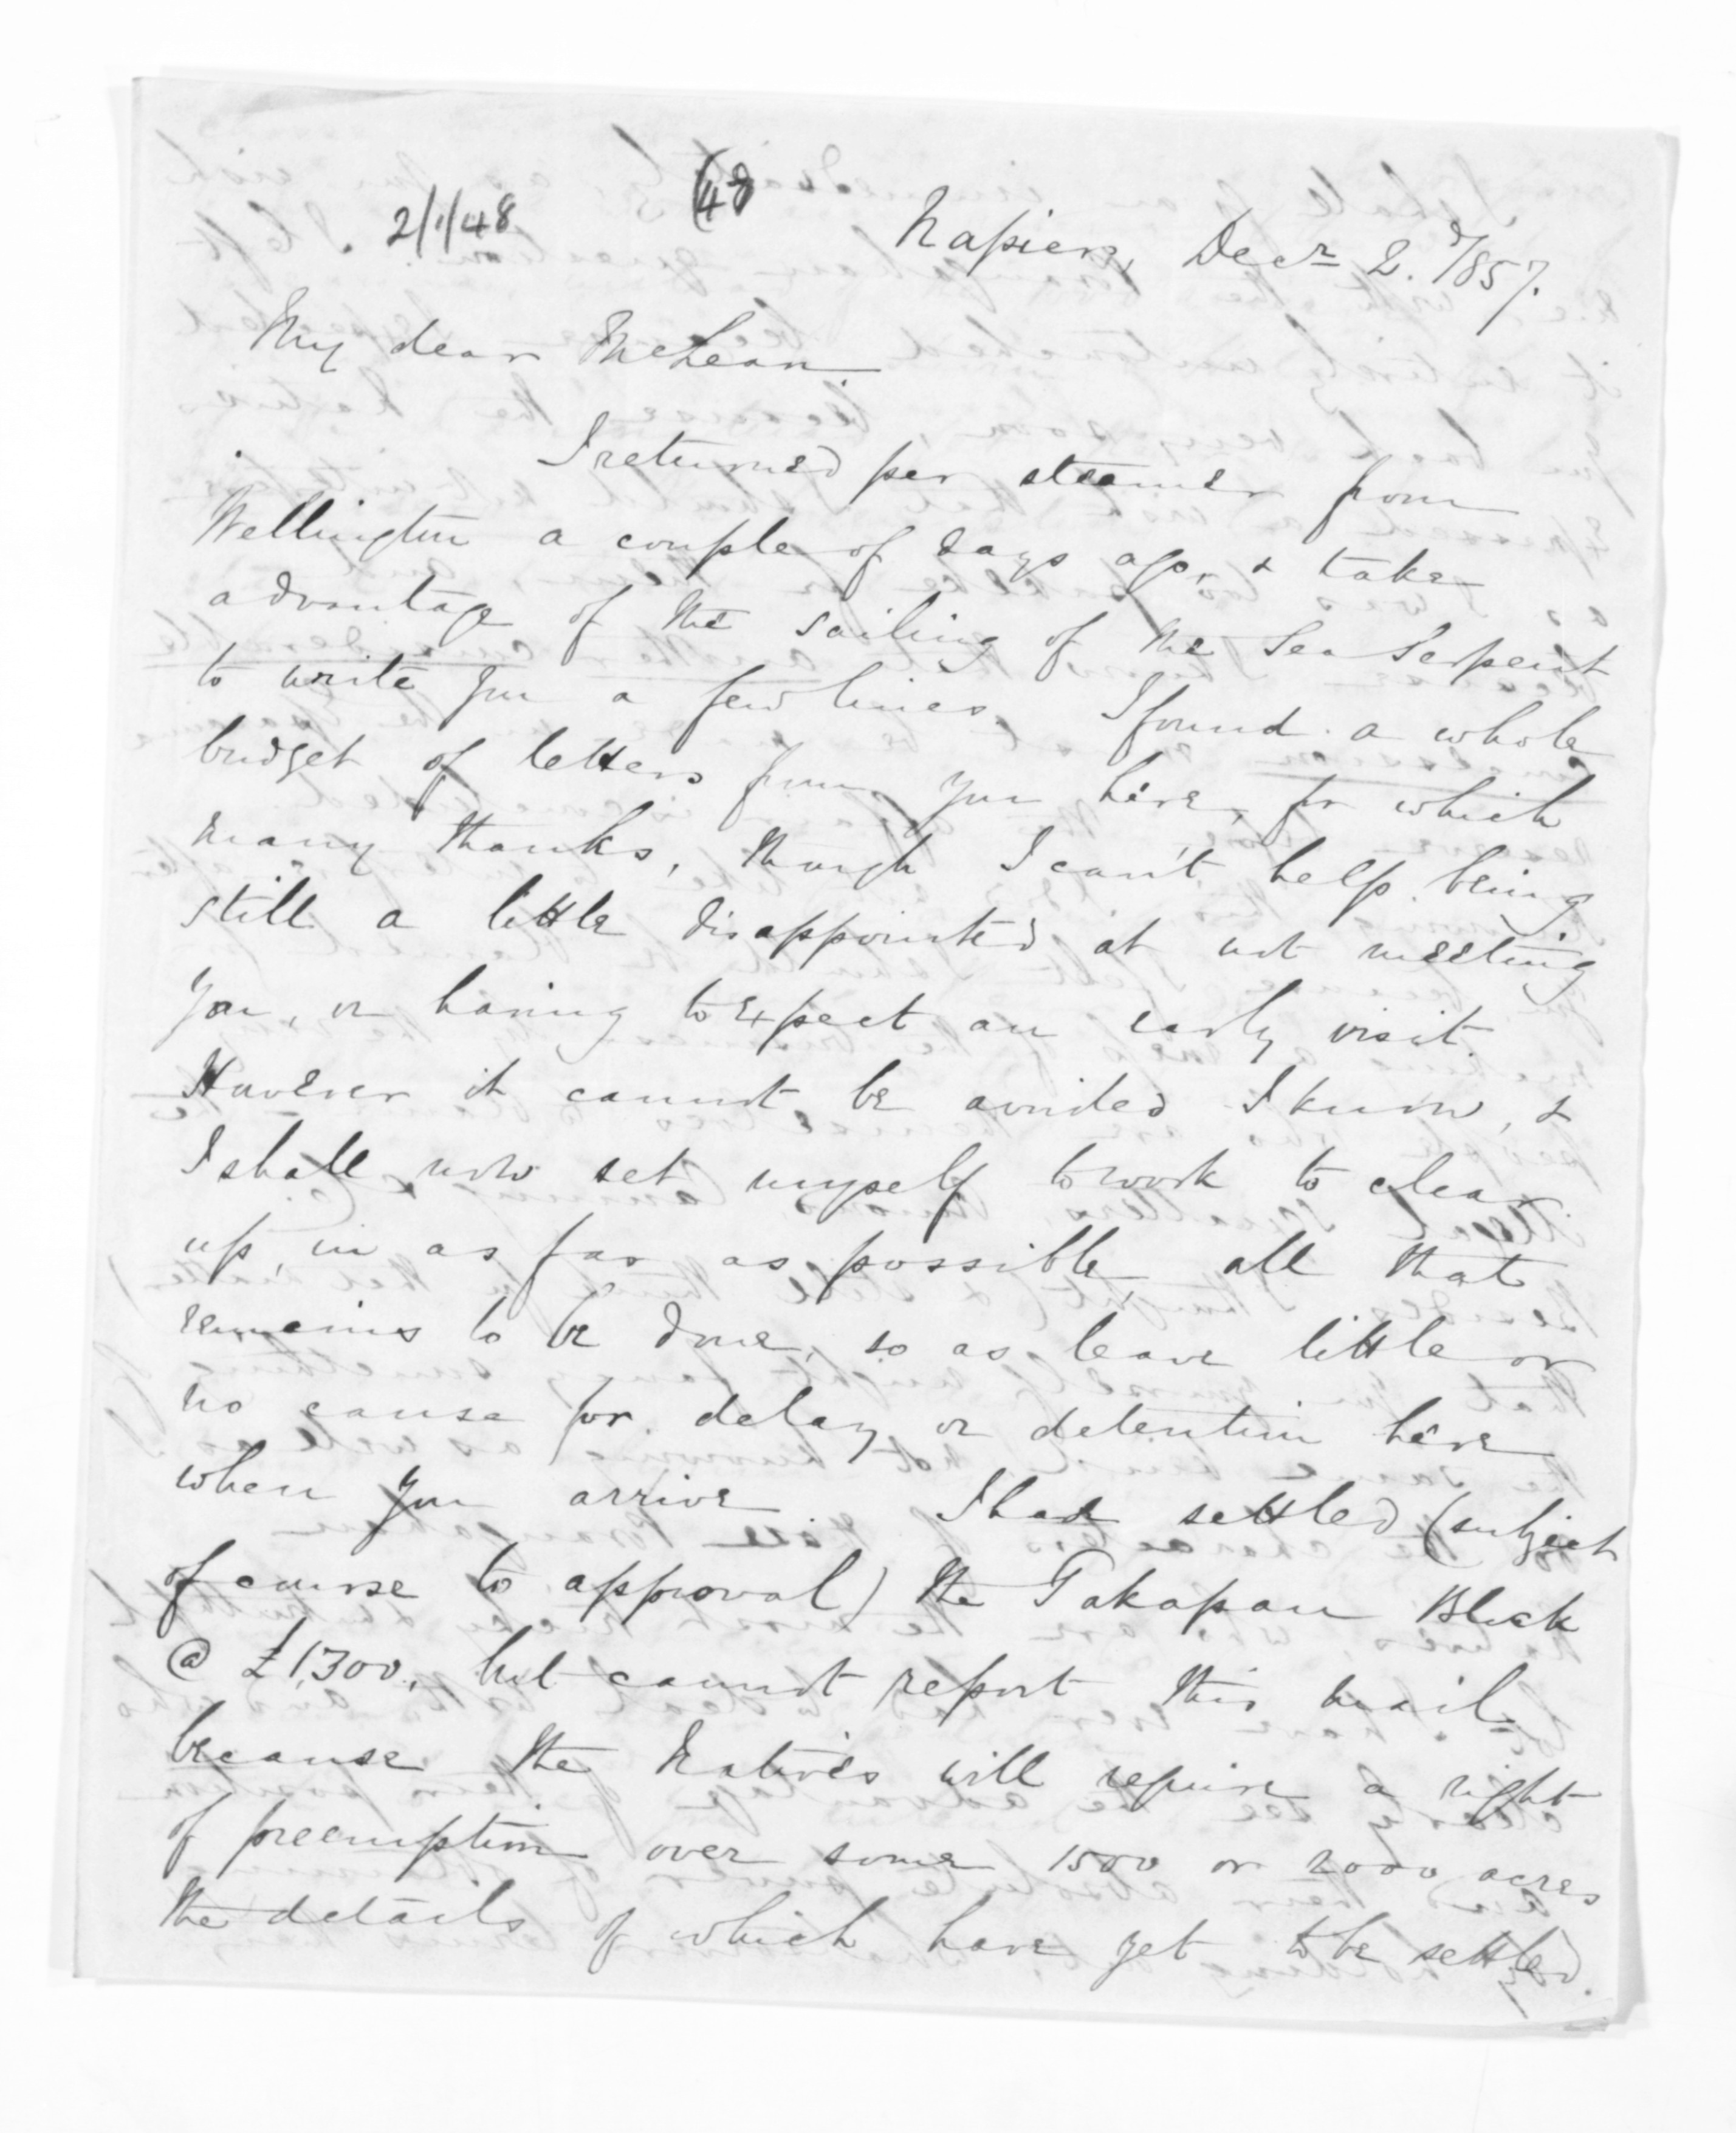 2/1/48
(48
Napier, Decr 2. /857.
My dear McLean
I returned per steamer from
Wellington a couple of days ago, & take
advantage of the sailing of the Sea Serpent
to write you a few lines. I found a whole
budget of letters from you here, for which
many thanks, though I can't help being
still a little disappointed at not meeting
you, or having to expect an early visit.
However it cannot be avoided I know, &
I shall now set myself to work to clear
up, in as far as possible, all that
remains to be done, so as leave little or
no cause for delay or detention here
when you arrive. I had settled (subject
of course to approval) the Takapau Block
@ £1300, but cannot report this mail,
because the Natives will require a right
of preemption over some 1500 or 2000 acres
the details of which have yet to be settled.